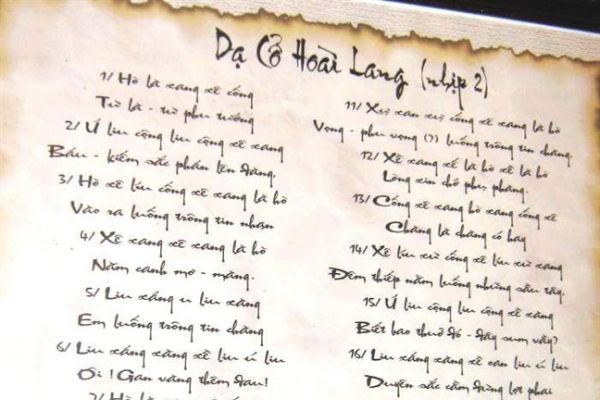 Dạ Cổ Hoài Lang (nhịp 2)
1/ Hò là xang xê cống
Từ là - từ phu tướng
2/ Ú liu cộng liu cộng xê xang
Báu - kiếm sắc phán lên đàng.
3/ Hò xê líu cống xê xang là hò
Vào ra luống trông tin nhạn
4/ Xê xang xê xang là hò
Năm canh mơ - màng.
5/ Liu xáng u liu xáng
Em luống trông tin chàng
6/ Liu xáng xàng xê liu ú liu
Ôi! Gan vàng thêm đau!
7/ Hò là
11/ Xự xan xự cống xê xang là hò
Vọng - phu vọng (?) luống trông tin chàng.
12/ Xê xang xế là hò xê là hò
Lòng xin chớ phụ phàng.
13/ Cống xê xang hò xang cống xê
Chàng là chàng có hay
14/ Xê líu xừ cống xê líu xừ xang
Đêm thiếp nằm luống những sầu tây.
15/ Ú liu cộng liu cộng xê xang
Biết bao thuở đó - đây sum vầy?
16/ Liu xáng xàng xê oan liu ú liu
Duyên sắc cầm đừng lợt phai